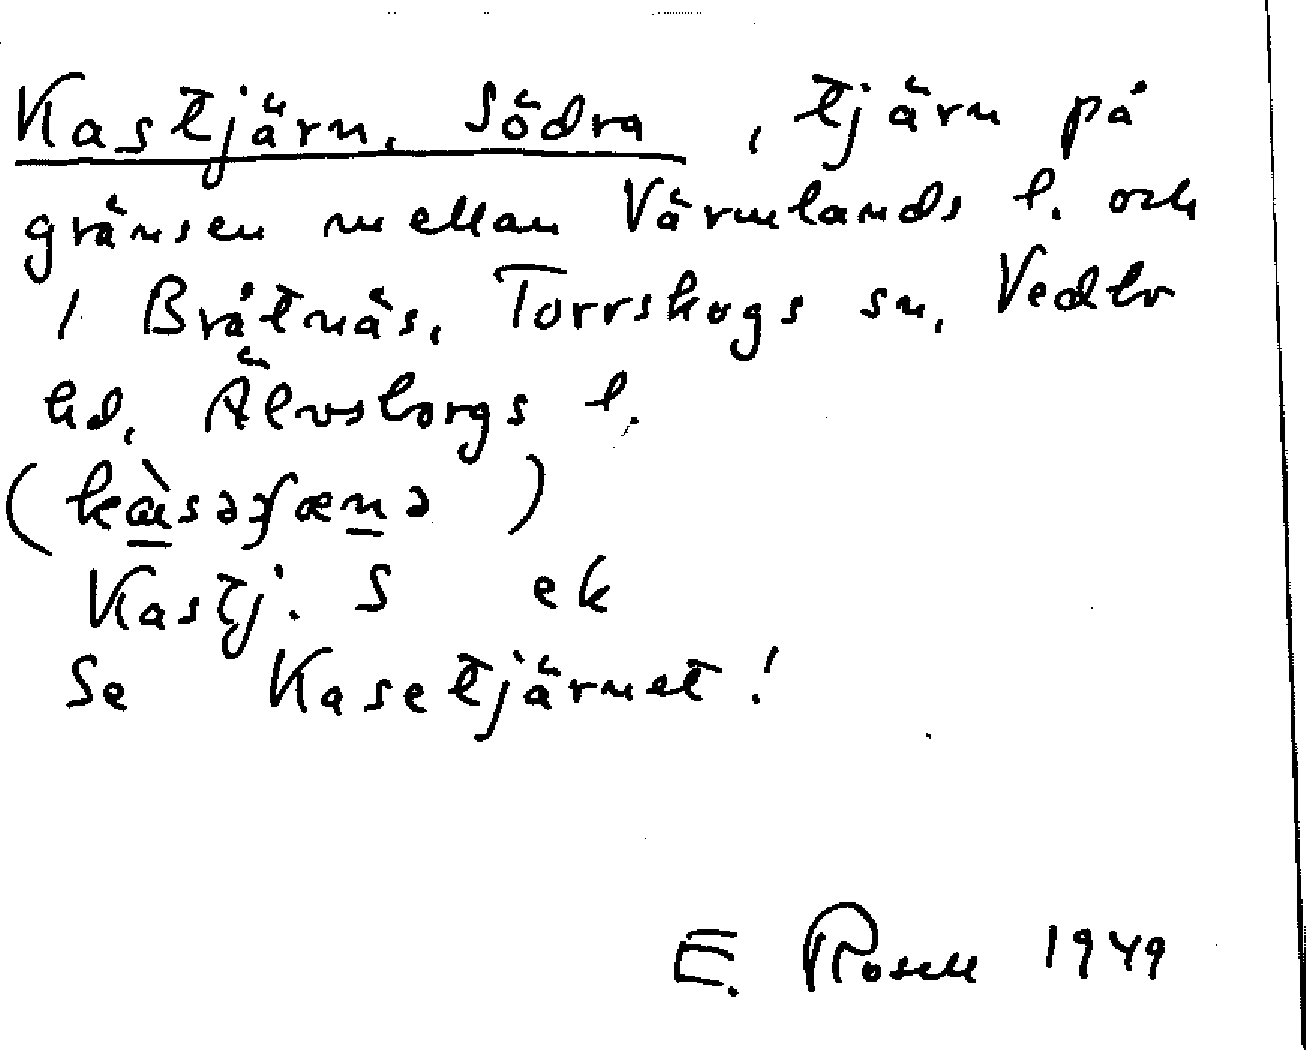 Kastjärn, Södra, tjärn på
gränsen mellan Värmlands l. och
1 Bråtnäs, Torrskogs sn, Vedbo
hd, Älvsborgs l.
Kastj. S ek
Se Kasetjärnet!
E. Rosell 1949